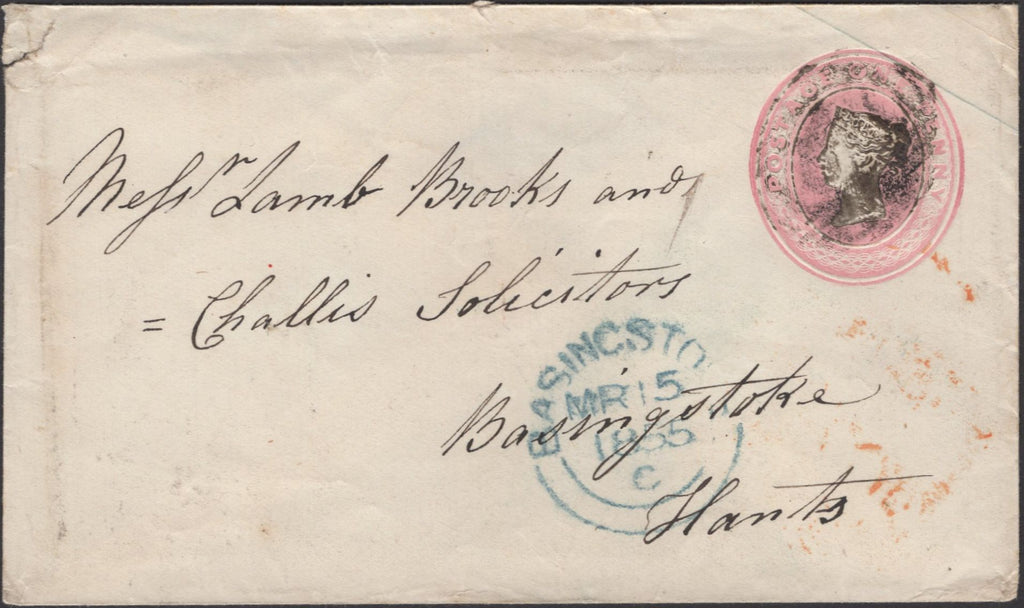 POSTAGE ONE PENNY
Messrs Lamb Brooks and
= Challis Solicitors
Basingstoke
Hants
BASINGSTO
MR 15
1855
C